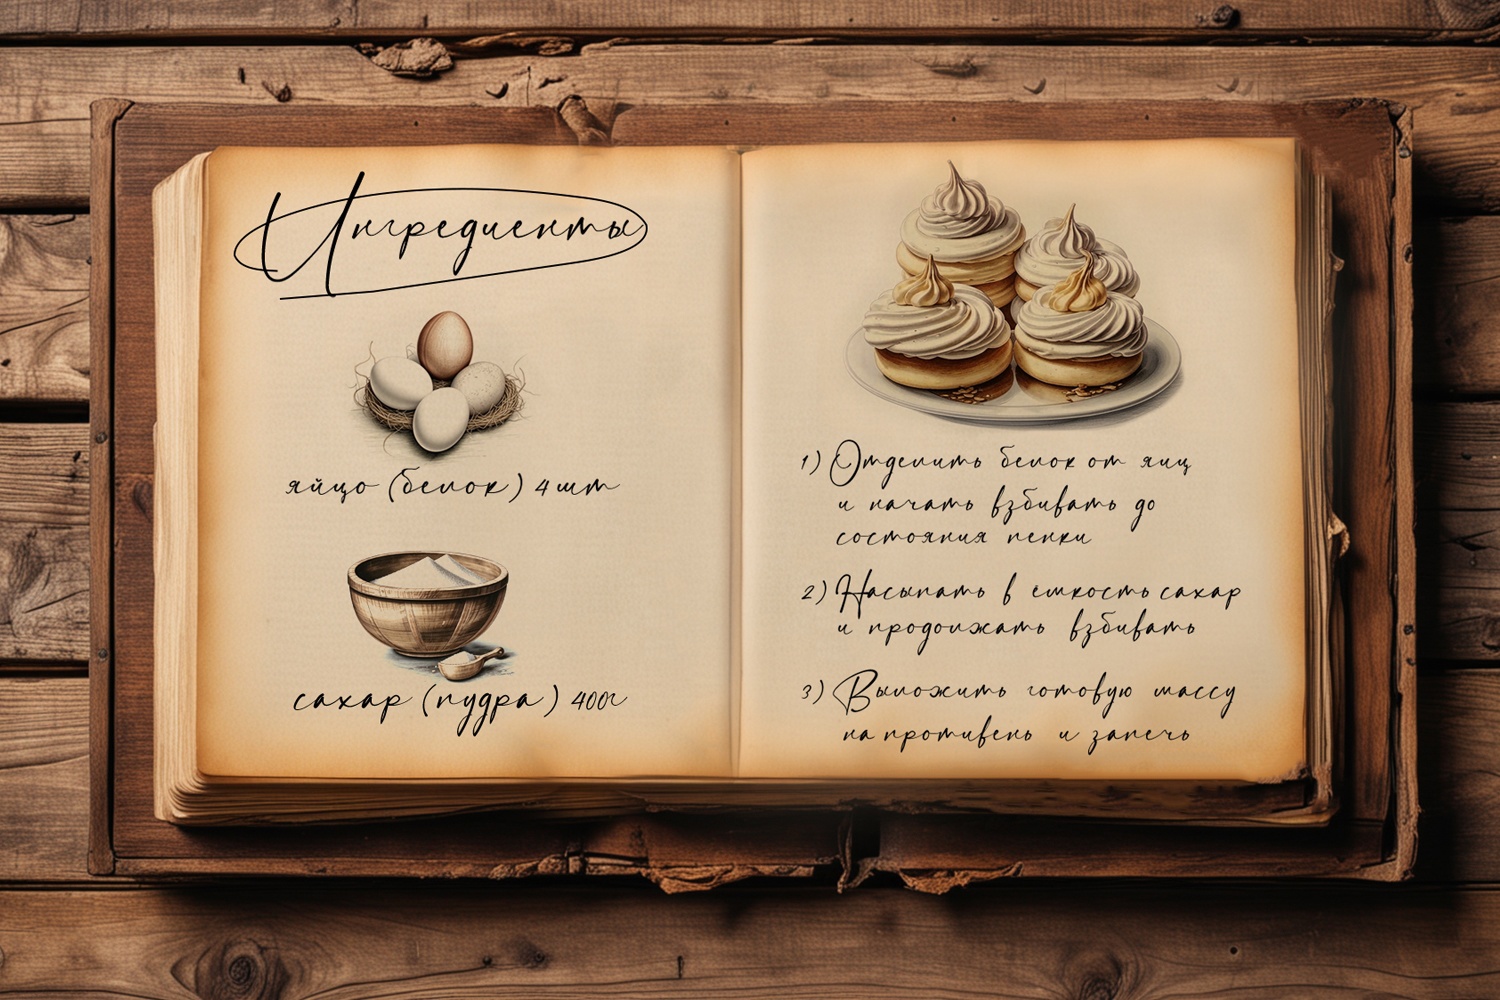 Ингредиенты
яйцо (белок) 4 шт
сахар (пудра) 400г
1) Отделить белок от яиц
и начать взбивать до
состояния пенки
2) Насыпать в емкость сахар
и продолжать взбивать
3) Выложить готовую массу
на противень и запечь